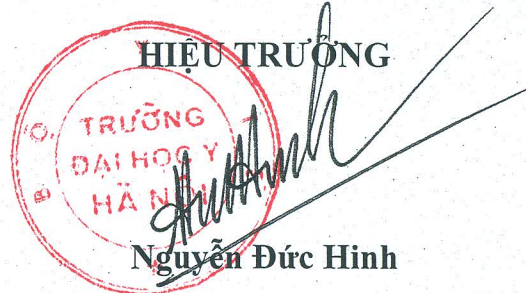 HIỆU TRƯỞNG
TRƯỜNG
ĐẠI HỌC Y
HÀ NỘI
Nguyễn Đức Hinh